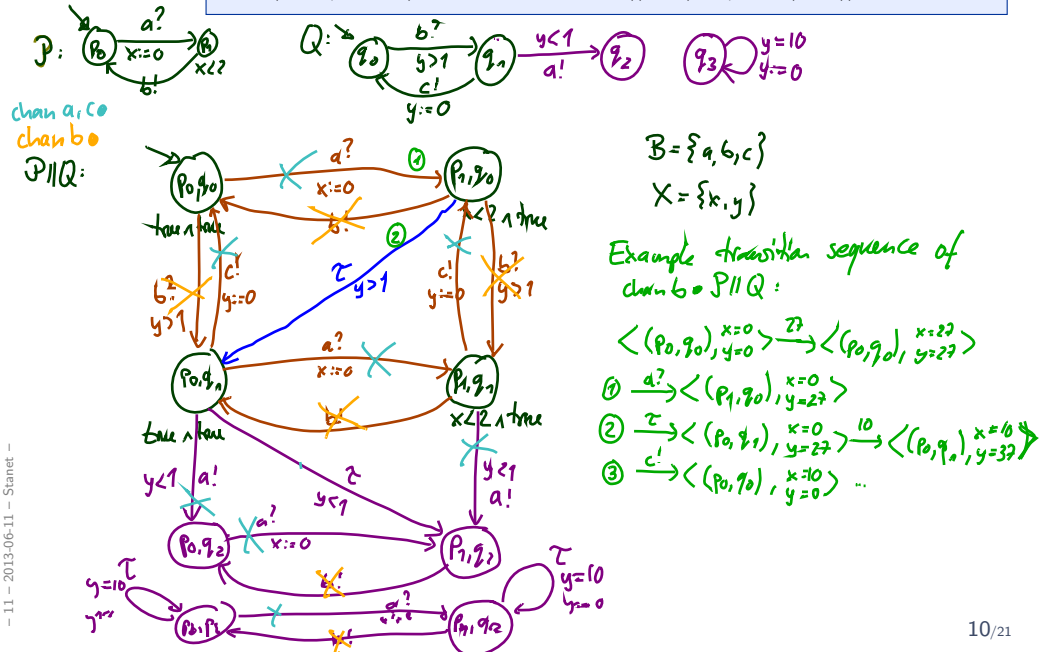 P:
p0
a?
x:=0
p1
x<2
b!
Q:
q0
b?
y>1
q1
c!
y:=0
y<1
a!
q2
q3
y=10
y:=0
chan a,c
chan b
P||Q:
p0,q0
true ∧ true
a?
x:=0
①
p1,q0
x<2 ∧ true
b!
②
τ
y>1
b?
y>1
c!
y:=0
c!
y:=0
b?
y>1
p0,q1
true ∧ true
a?
x:=0
b!
p1,q1
x<2 ∧ true
y<1
a!
τ
y<1
y<1
a!
p0,q2
a?
x:=0
b!
p1,q2
τ
y=10
a?
b!
τ
y=10
y:=0
B = {a,b,c}
X = {x,y}
Example transition sequence of
chan b • P||Q:
<(p0,q0), x=0 y=0> 27→ <(p0,q0), x=27 y=27>
① a?→ <(p1,q0), x=0 y=27>
② τ→ <(p0,q1), x=0 y=27> 10→ <(p0,q1), x=10 y=37>
③ c!→ <(p0,q0), x=10 y=0> ...
– 11 – 2013-06-11 – Stanet –
10/21